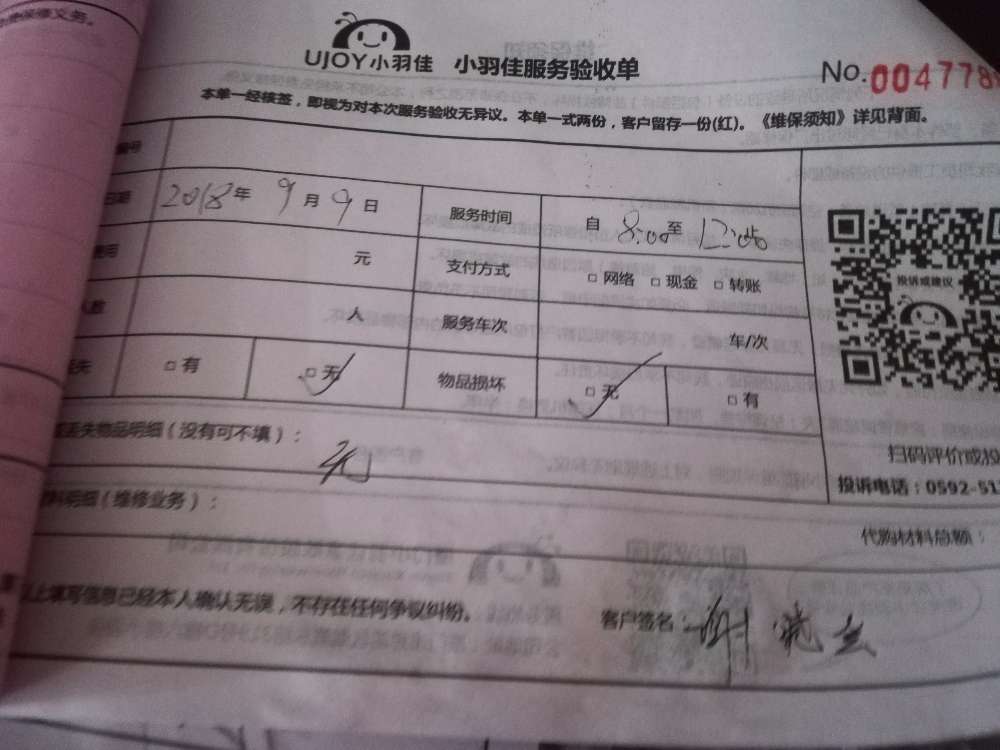 保修义务。
UJOY小羽佳 小羽佳服务验收单 No. 004778
本单一经核签，即视为对本次服务验收无异议。本单一式两份，客户留存一份(红)。《维保须知》详见背面。
编号
日期 2018年 9月 9日 服务时间 自 8:00 至 12:00
费用 元 支付方式 □ 网络 □ 现金 □ 转账
人数 人 服务车次 车/次
丢失 □ 有 □ 无 物品损坏 □ 无 □ 有
投诉或建议
丢失物品明细（没有可不填）： 无
扫码评价或投
投诉电话：0592-51
料明细（维修业务）：
代购材料总额：
以上填写信息已经本人确认无误，不存在任何争议纠纷。 客户签名：谢